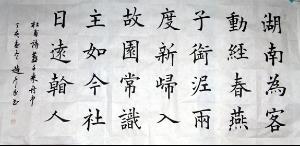 湖南為客
動經春燕
子銜泥兩
度新歸入
故園常識
主如今社
日遠看人
杜甫詩燕子來舟中
丁亥春